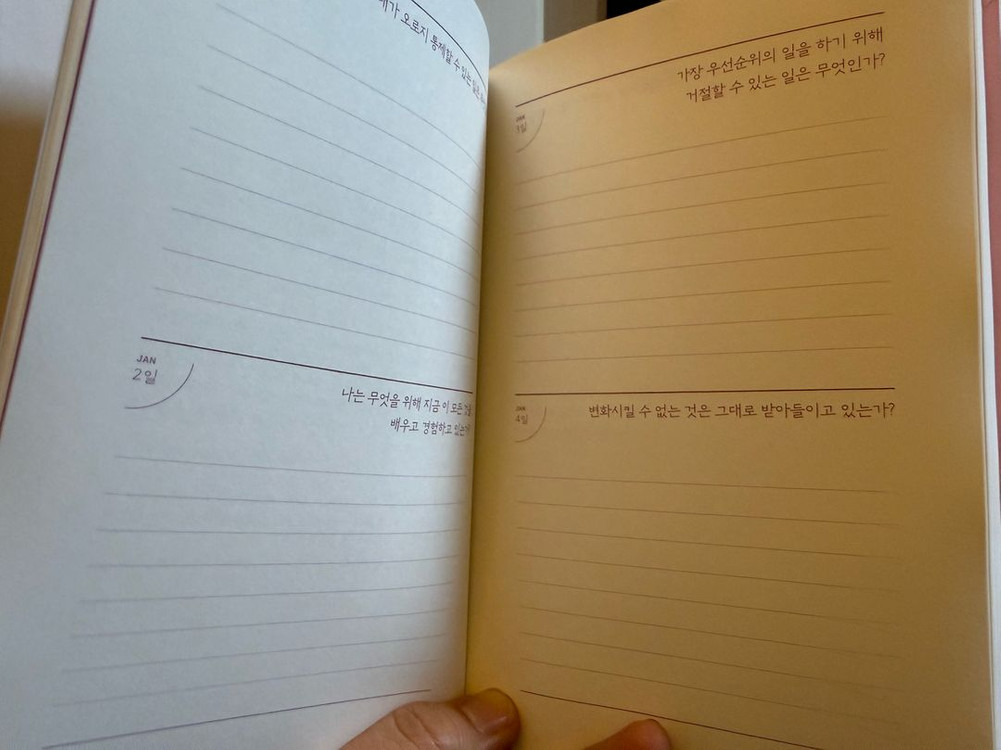 오로지 통제할 수 있는 일은
JAN
2일
나는 무엇을 위해 지금 이 모든 것을
배우고 경험하고 있는가?
가장 우선순위의 일을 하기 위해
거절할 수 있는 일은 무엇인가?
JAN
변화시킬 수 없는 것은 그대로 받아들이고 있는가?
JAN
4일